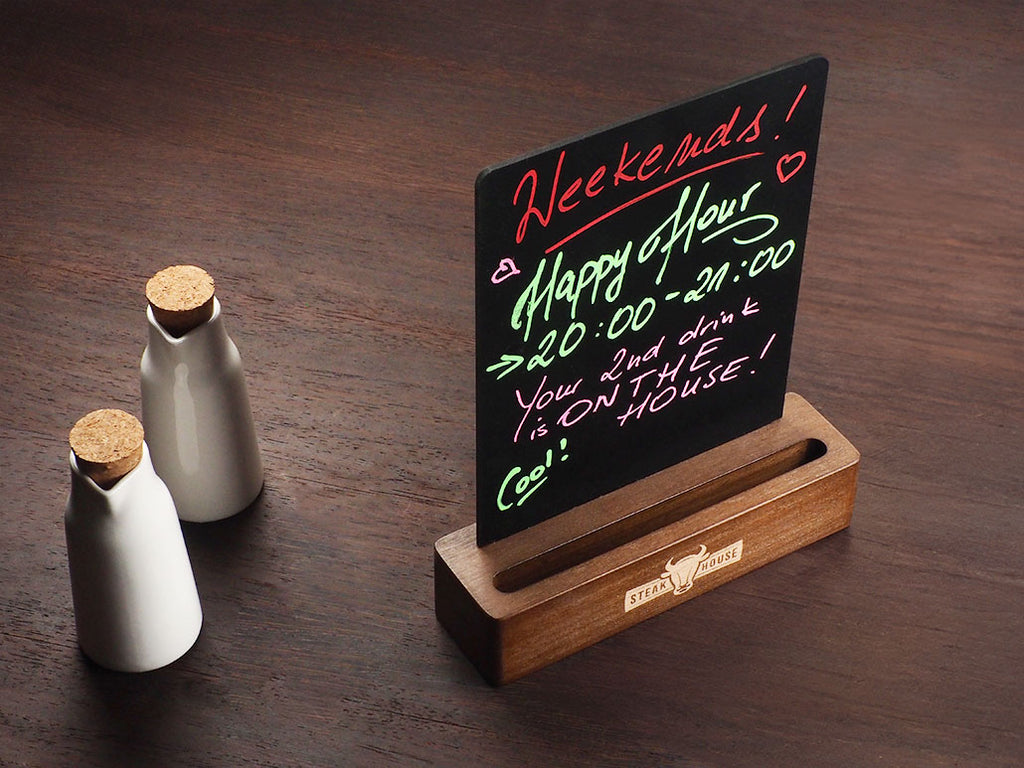 Weekends!
Happy Hour
→ 20:00 - 21:00
Your 2nd drink
is ON THE
HOUSE!
Cool!
STEAK HOUSE